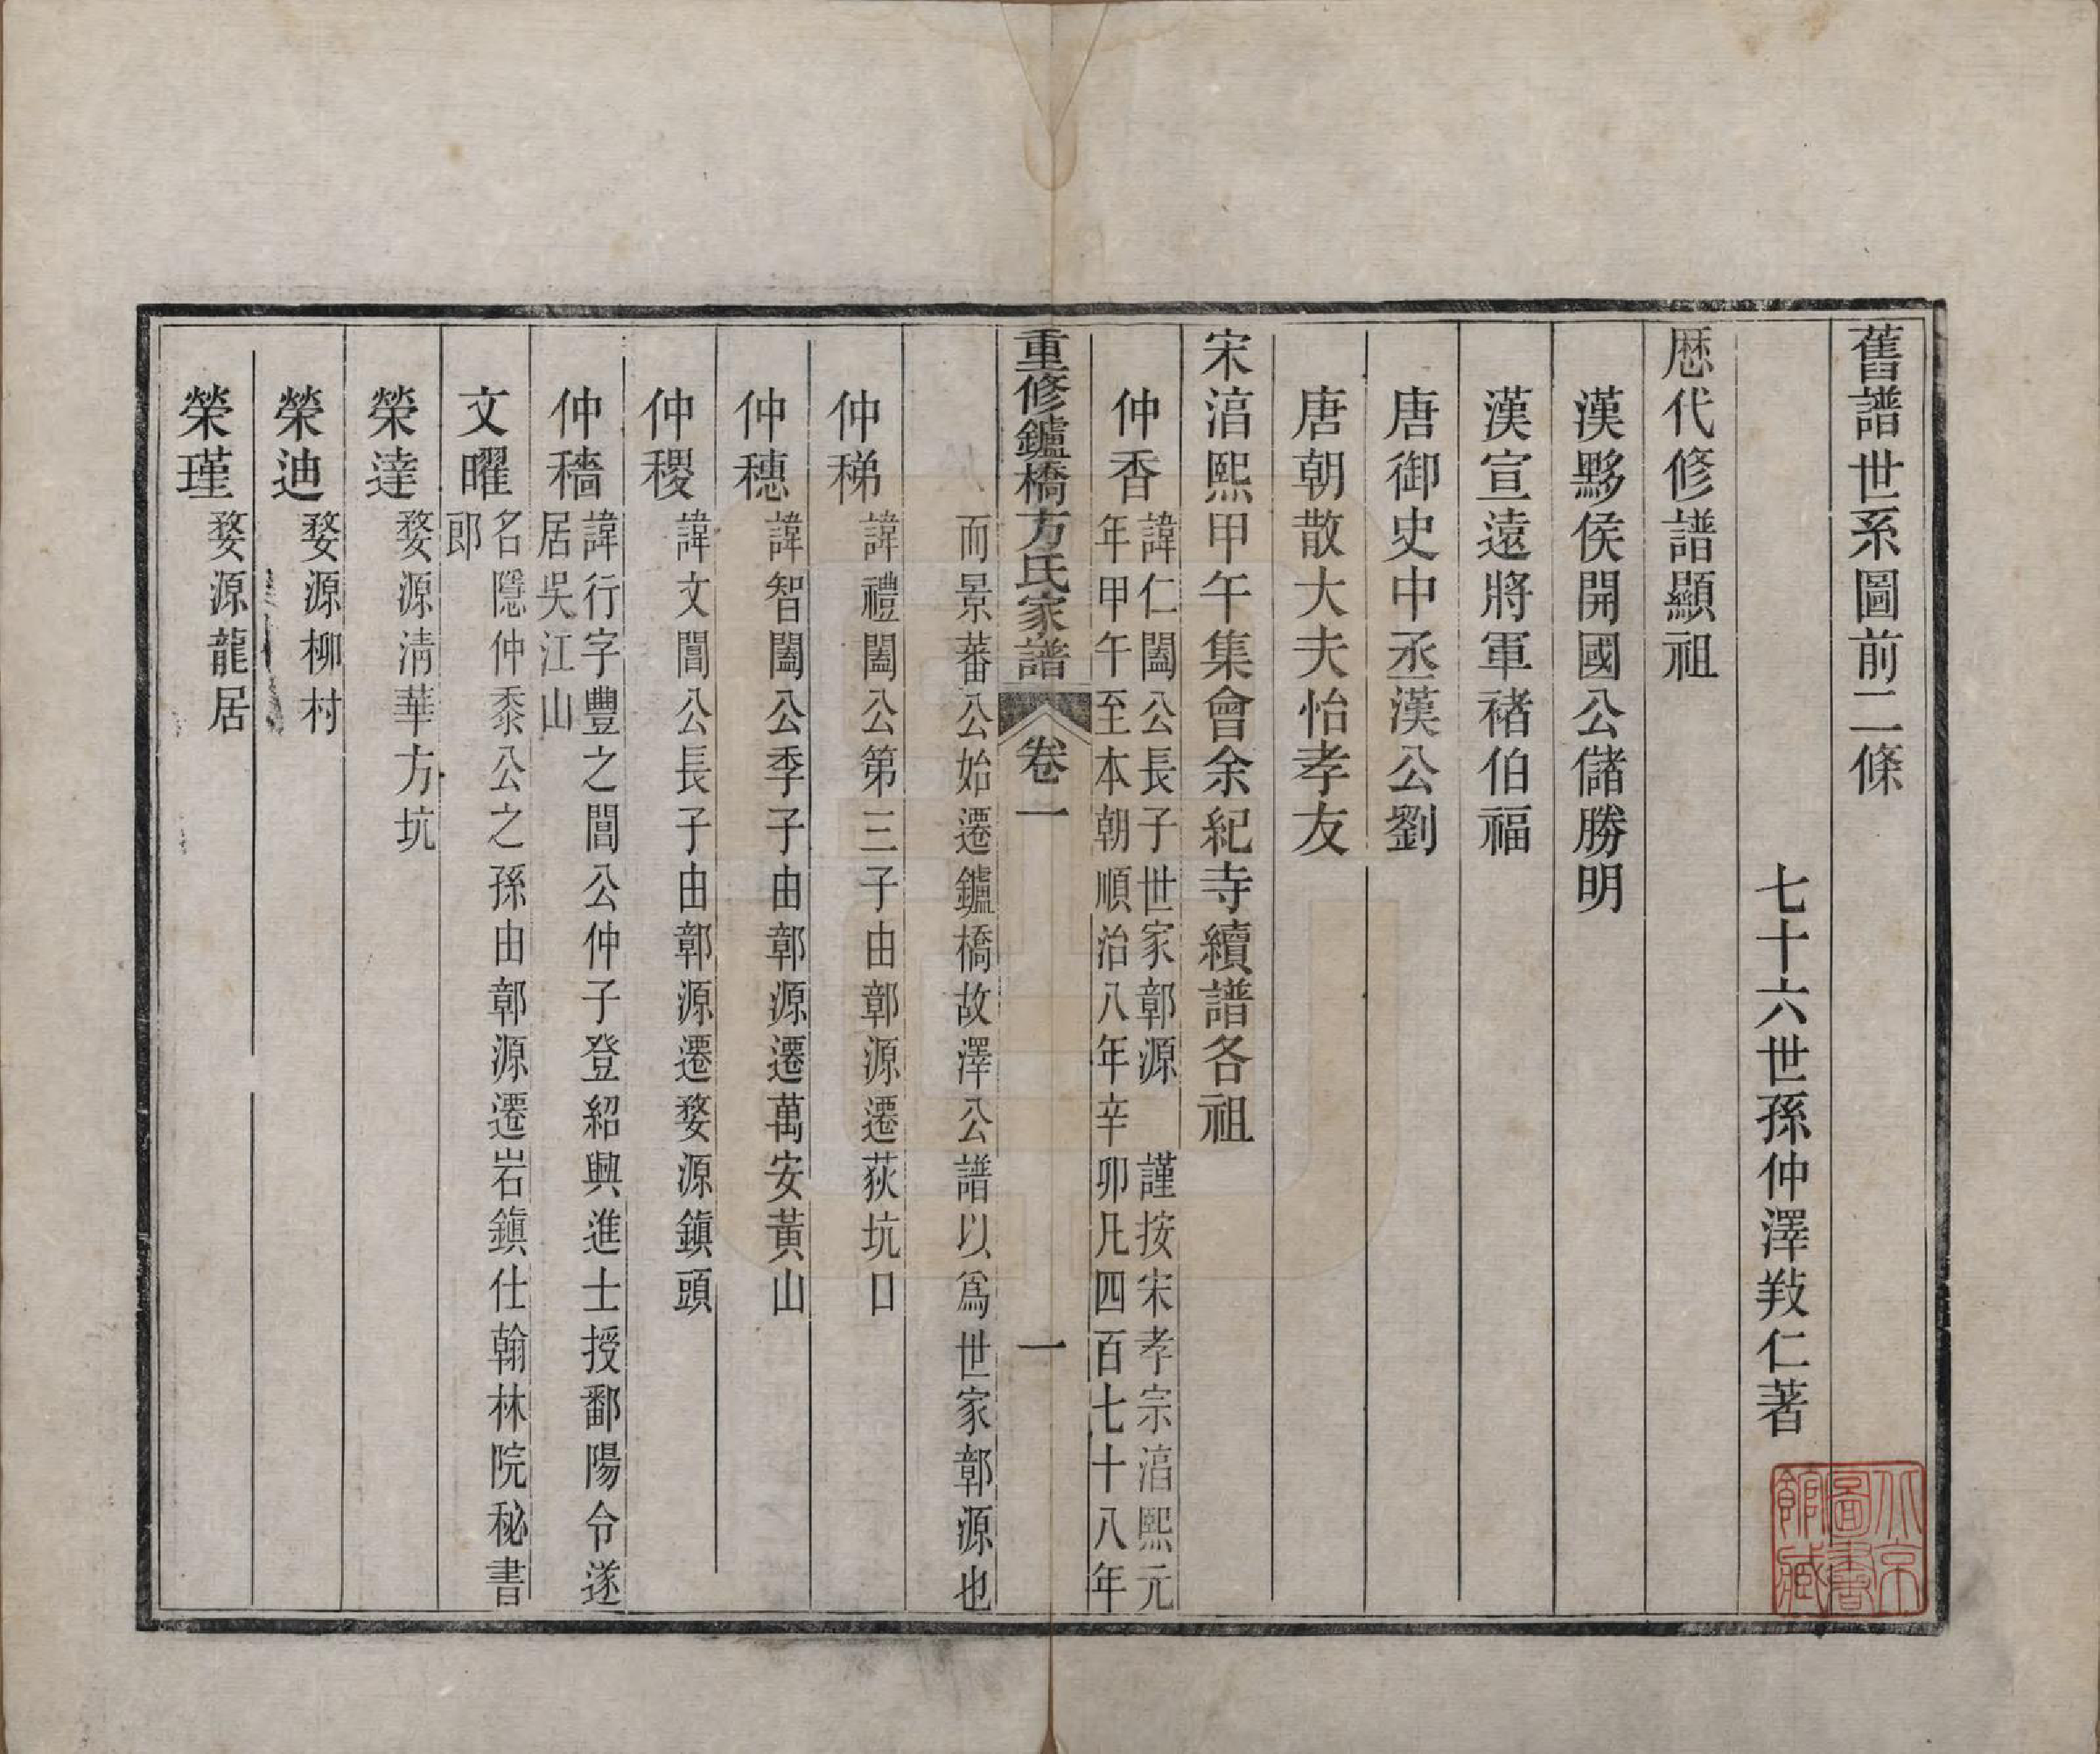 舊譜世系圖前二條
七十六世孫仲澤敎仁著
歴代修譜顯祖
漢黟侯開國公儲勝明
漢宣遠將軍褚伯福
唐御史中丞漢公劉
唐朝散大夫怡孝友
宋湻熙甲午集會余紀寺續譜各祖
仲香 諱仁闔公長子世家鄣源 謹按宋孝宗湻熙元
年甲午至本朝順治八年辛卯凡四百七十八年
重修鑪橋方氏家譜 卷一 一
而景蕃公始遷鑪橋故澤公譜以爲世家鄣源也
仲稊 諱禮闔公第三子由鄣源遷荻坑口
仲穗 諱智闔公季子由鄣源遷萬安黃山
仲稷 諱文閶公長子由鄣源遷婺源鎭頭
仲穡 諱行字豐之閶公仲子登紹興進士授鄱陽令遂
居吳江山
文曜 名隱仲黍公之孫由鄣源遷岩鎭仕翰林院秘書
郎
榮達 婺源清華方坑
榮迪 婺源柳村
榮瑾 婺源龍居
北京圖書館藏